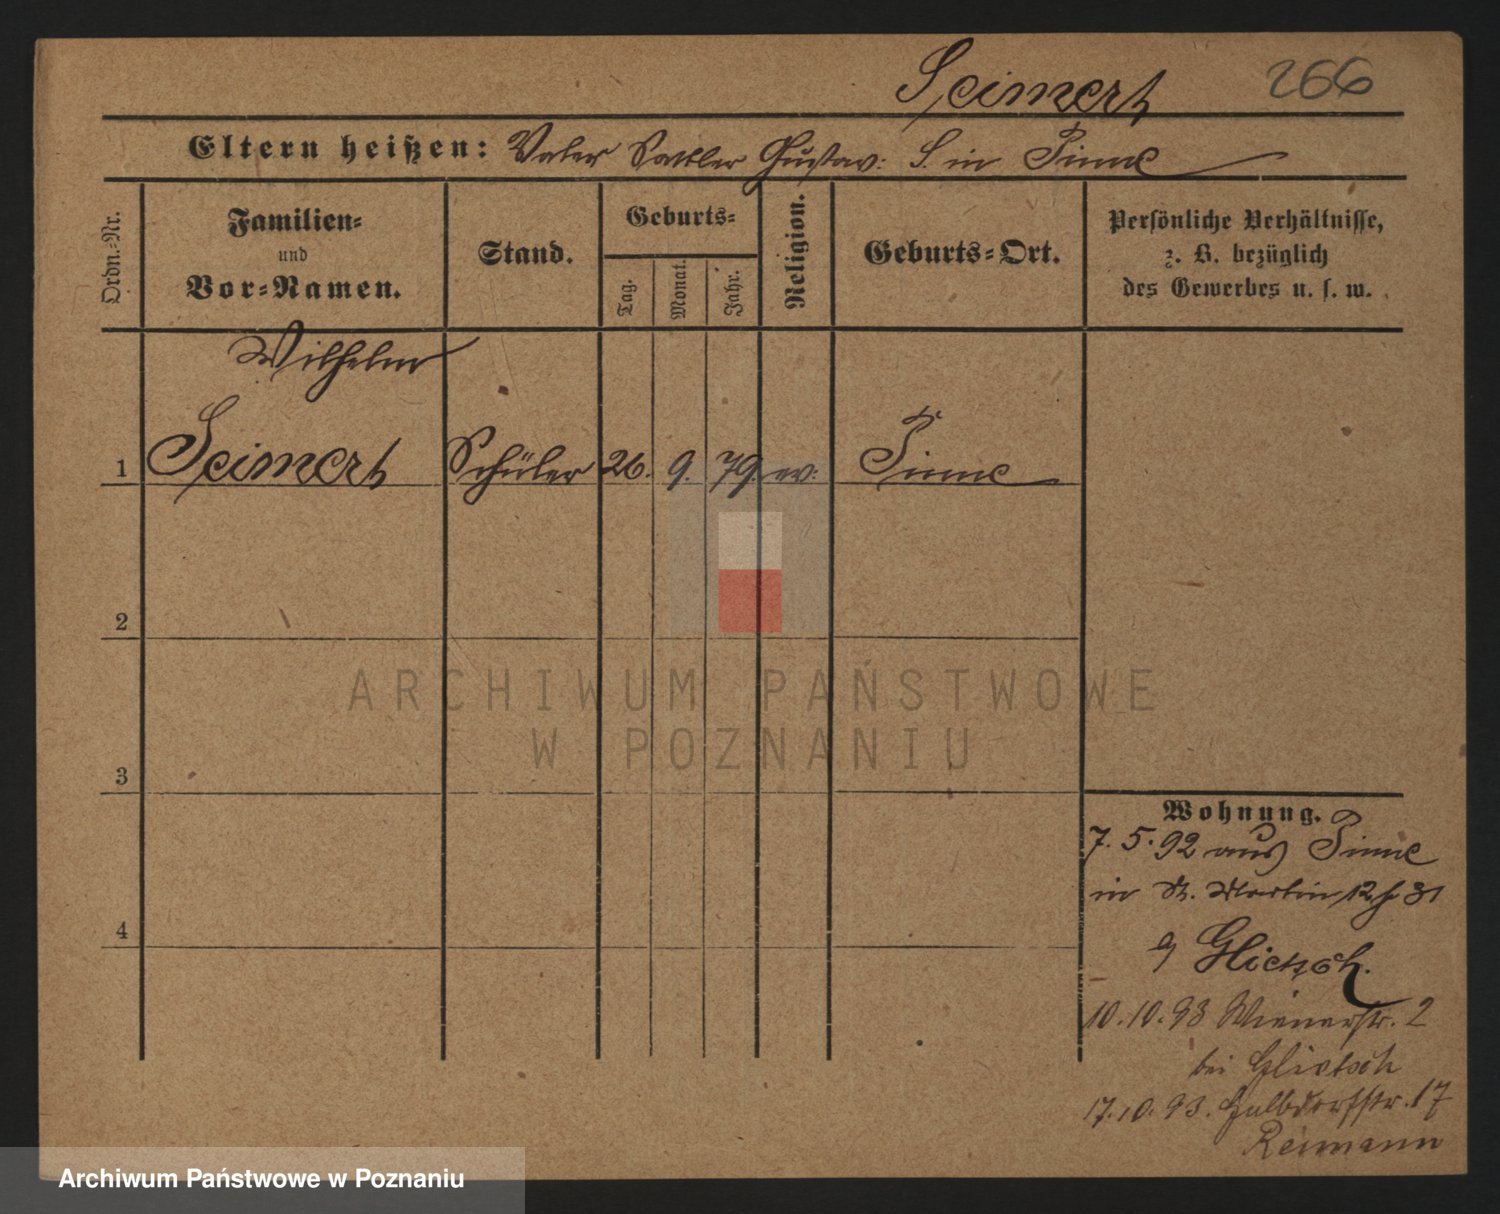 Seimert 266
Eltern heißen: Vater Sattler Gustav S. in Pinne
Ordn.-Nr.
Familien-
und
Vor-Namen.
Stand.
Geburts-
Tag.
Monat.
Jahr.
Religion.
Geburts-Ort.
Persönliche Verhältnisse,
z. B. bezüglich
des Gewerbes u. s. w.
Wilhelm
1 Seimert Schüler 26. 9. 79. ev. Pinne
2
ARCHIWUM PAŃSTWOWE
W POZNANIU
3
Wohnung.
7. 5. 92 aus Pinne
in St. Martin 31
4
Glietsch.
10. 10. 93 Wienerstr. 2
bei Glietsch
17. 10. 93. Halbdorfstr. 17
Reimann
Archiwum Państwowe w Poznaniu